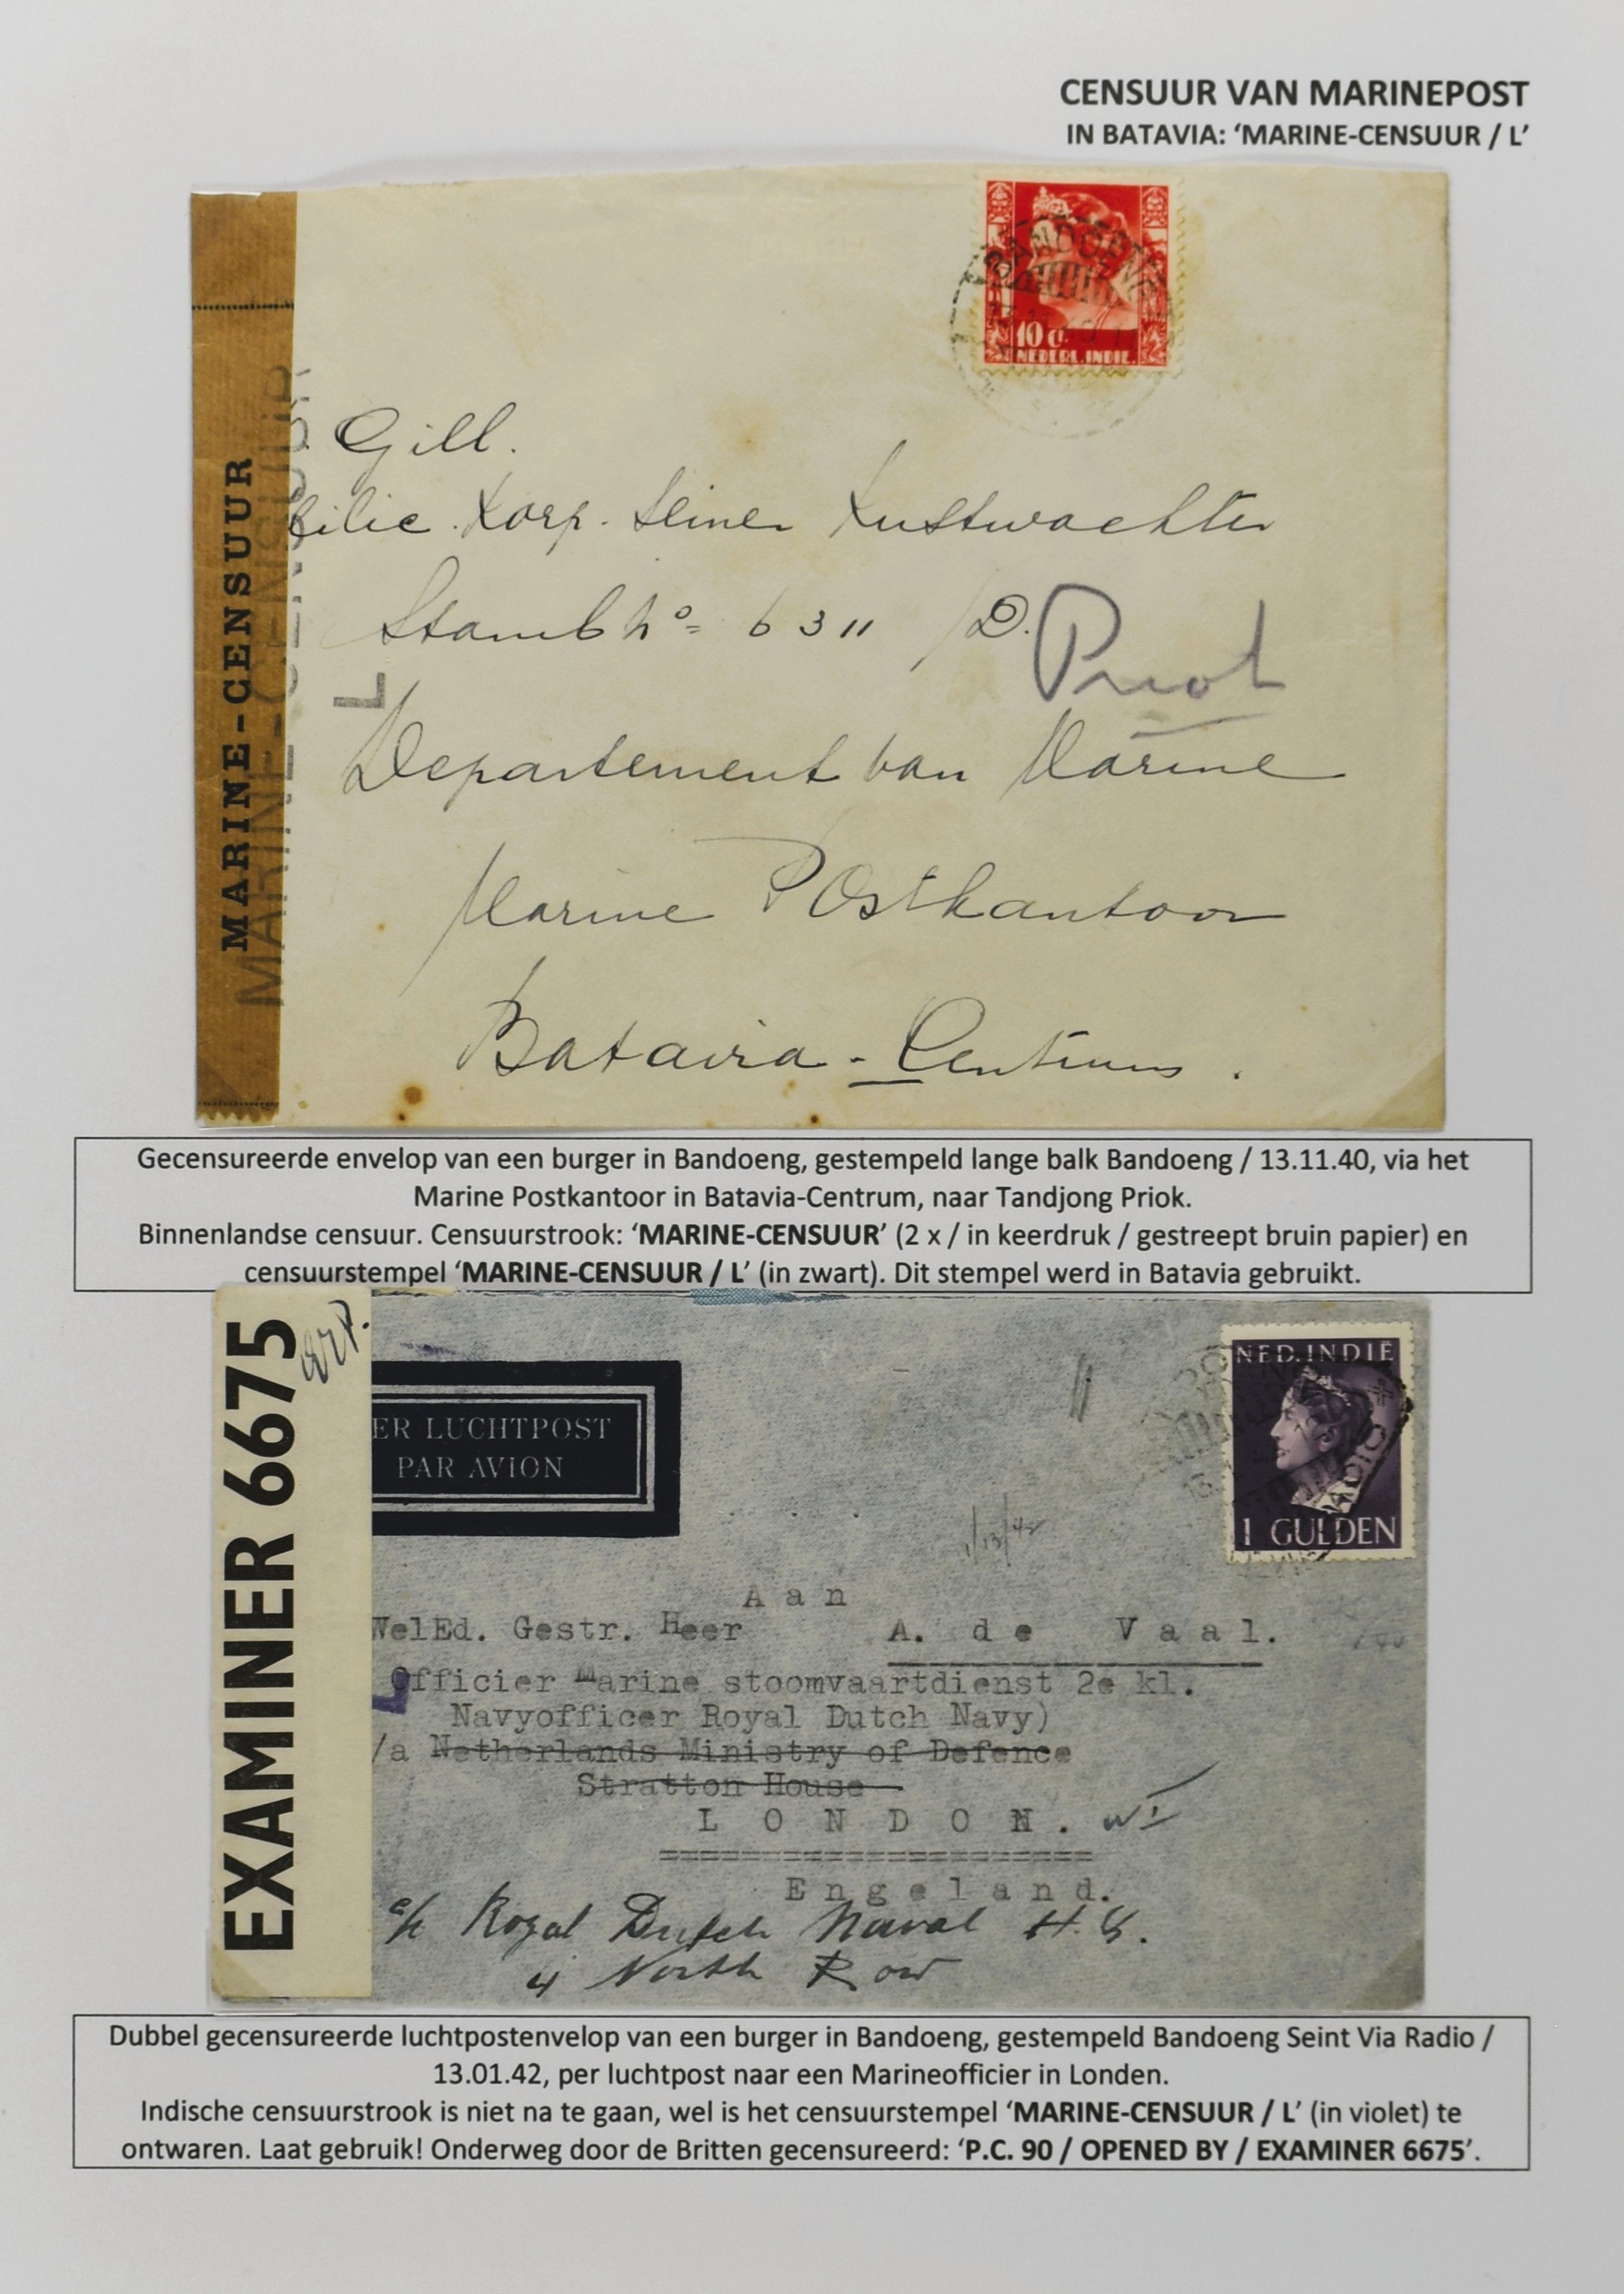 CENSUUR VAN MARINEPOST
IN BATAVIA: ‘MARINE-CENSUUR / L’
MARINE-CENSUUR
MARINE-CENSUUR
L
BANDOENG
10 c.
NEDERL. INDIE.
Gill.
Korp. Seiner Kustwachter
Stamb No= 6311 /D.
Priok
Departement van Marine
Marine Postkantoor
Batavia - Centrum.
Gecensureerde envelop van een burger in Bandoeng, gestempeld lange balk Bandoeng / 13.11.40, via het
Marine Postkantoor in Batavia-Centrum, naar Tandjong Priok.
Binnenlandse censuur. Censuurstrook: ‘MARINE-CENSUUR’ (2 x / in keerdruk / gestreept bruin papier) en
censuurstempel ‘MARINE-CENSUUR / L’ (in zwart). Dit stempel werd in Batavia gebruikt.
EXAMINER 6675
ER LUCHTPOST
PAR AVION
NED. INDIË
1 GULDEN
1/13/42
Aan
WelEd. Gestr. Heer A. de Vaal.
Officier Marine stoomvaartdienst 2e kl.
Navyofficer Royal Dutch Navy)
/a Netherlands Ministry of Defence
Stratton House
LONDON. W1
=====================
Engeland.
c/o Royal Dutch Naval H.Q.
4 North Row
Dubbel gecensureerde luchtpostenvelop van een burger in Bandoeng, gestempeld Bandoeng Seint Via Radio /
13.01.42, per luchtpost naar een Marineofficier in Londen.
Indische censuurstrook is niet na te gaan, wel is het censuurstempel ‘MARINE-CENSUUR / L’ (in violet) te
ontwaren. Laat gebruik! Onderweg door de Britten gecensureerd: ‘P.C. 90 / OPENED BY / EXAMINER 6675’.